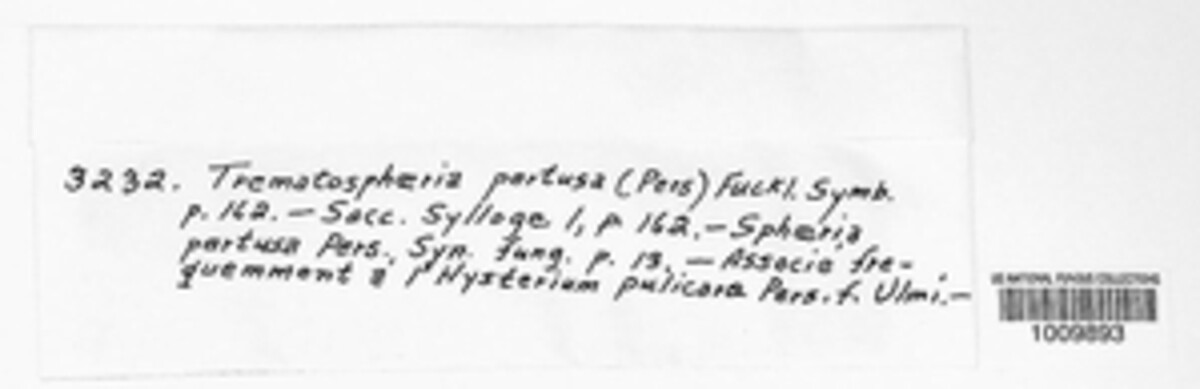 3232. Trematospheria pertusa (Pers) Fuckl. Symb.
p. 162. — Sacc. Sylloge 1, p 162. — Spheria
pertusa Pers., Syn. fung. p. 13. — Associé fre-
quemment a l'Hysterium pulicare Pers. f. Ulmi. —
US NATIONAL FUNGUS COLLECTIONS
1009893